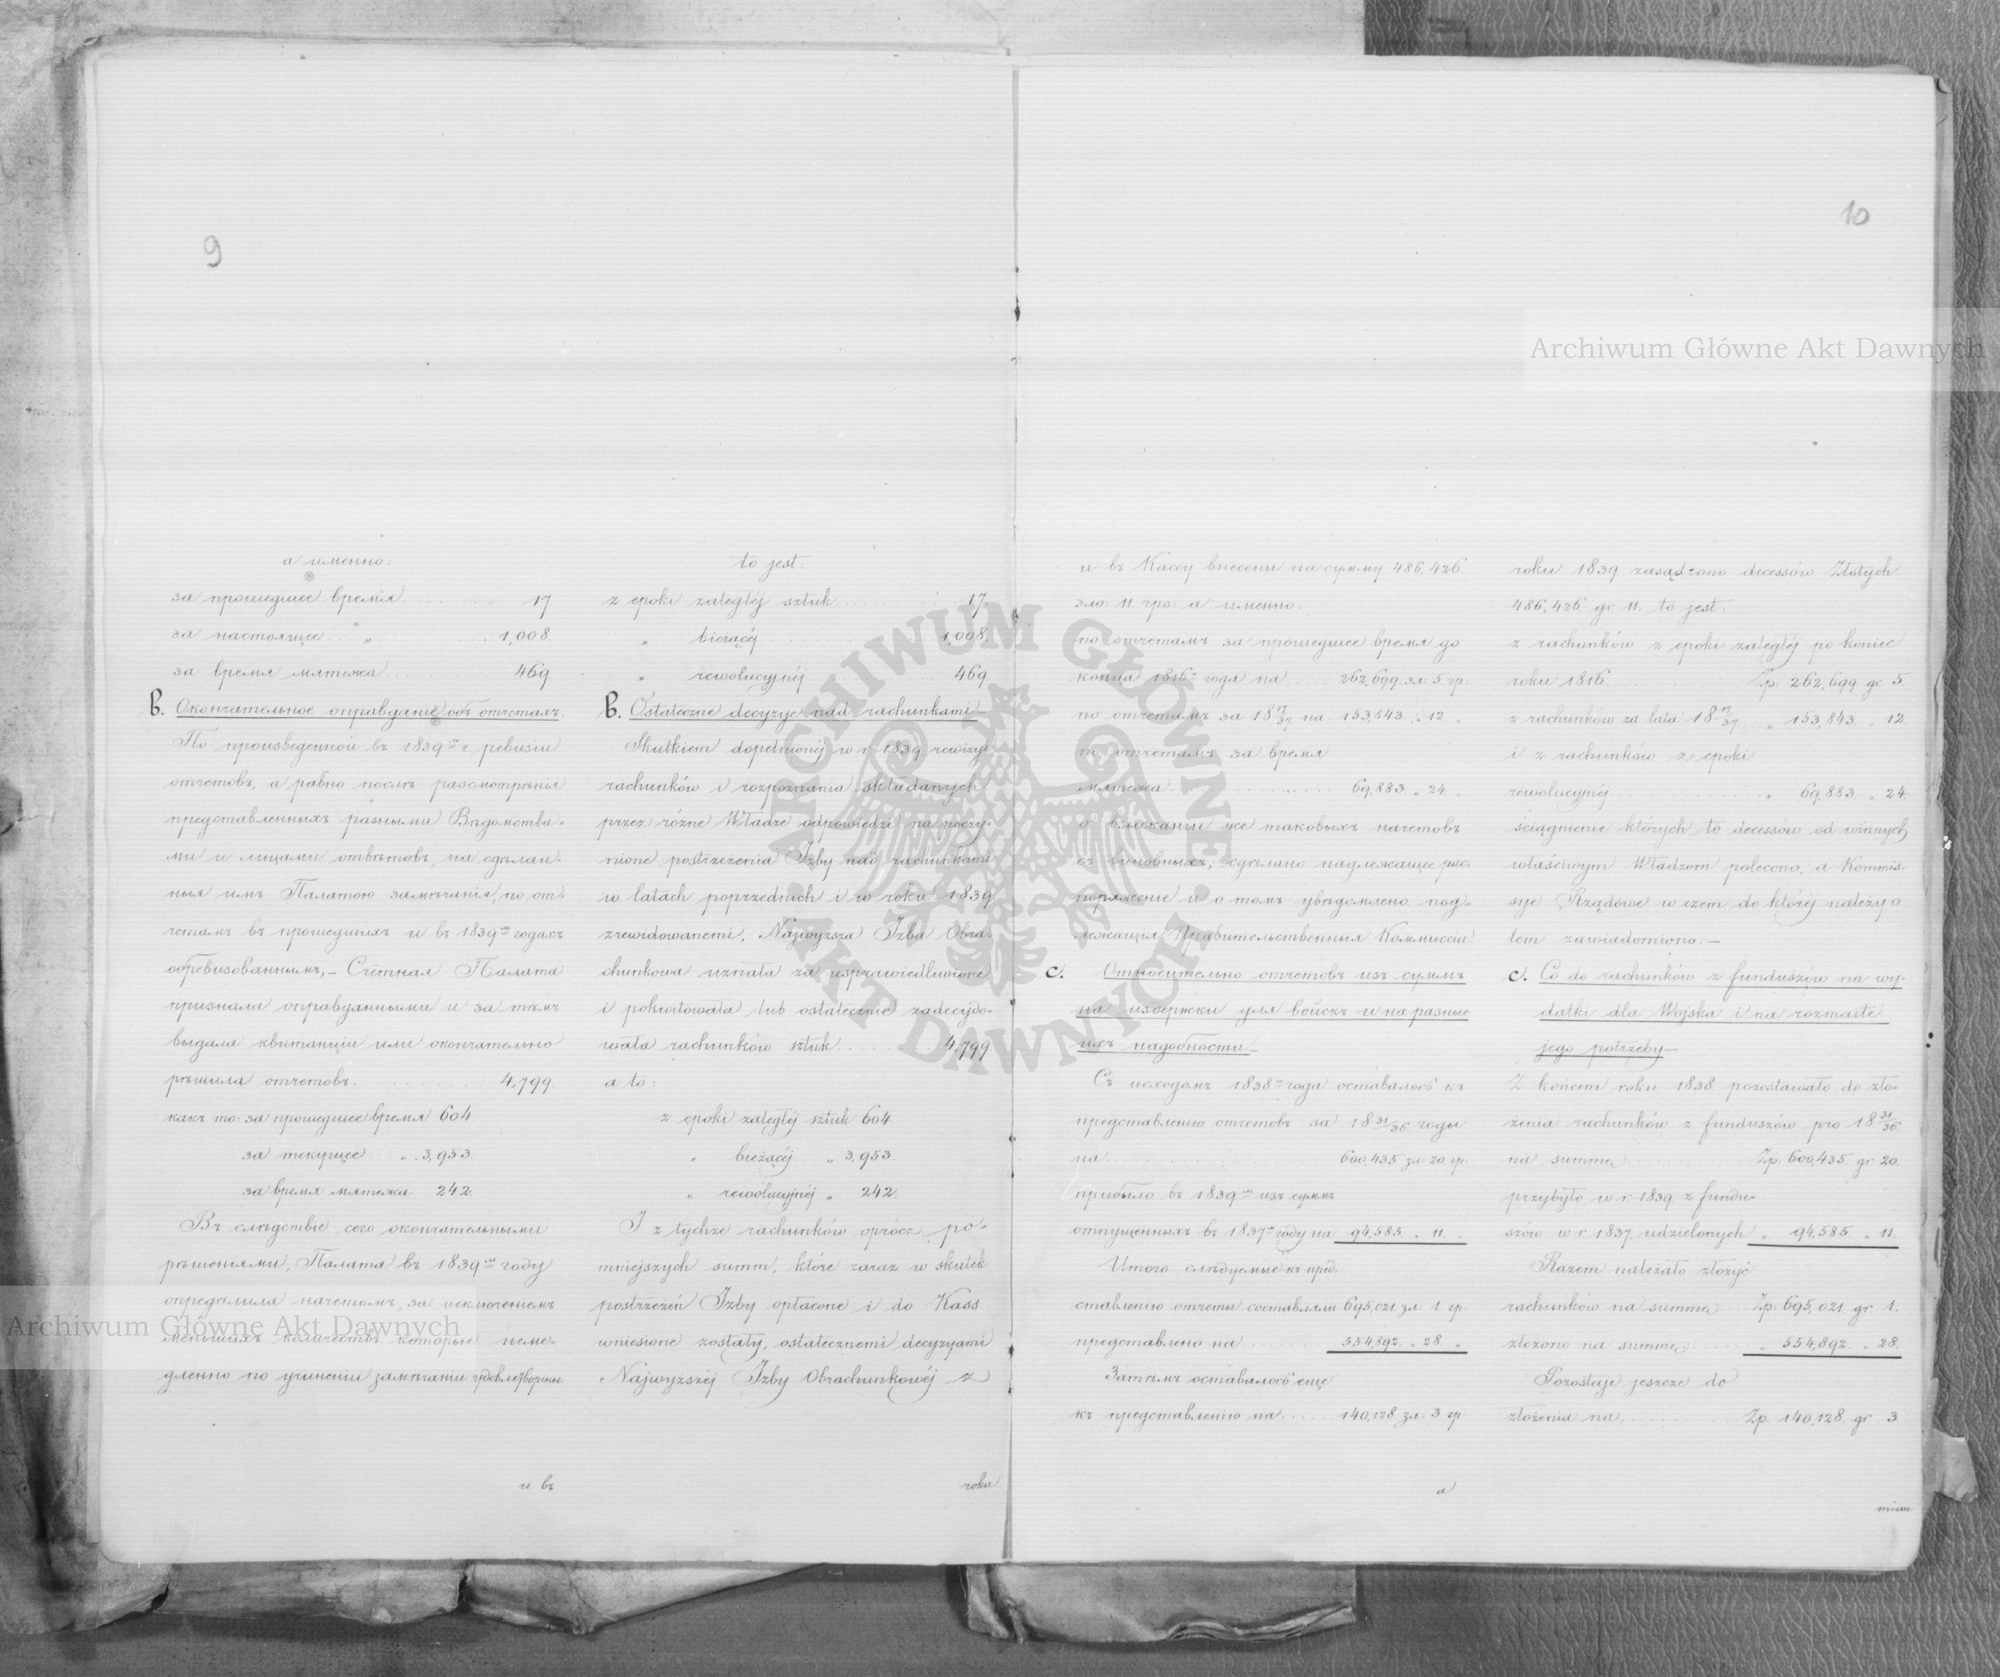 9
а именно:
за прошедшее время 17
за настоящее „ 1,008.
за время мятежа 469
В. Окончательное оправданіе объ отчетахъ.
По произведенной въ 1839мъ г. ревизіи
отчетовъ, а равно послѣ разсмотрѣнія
представленныхъ разными Вѣдомства-
ми и лицами отвѣтовъ, на сдѣлан-
ныя имъ Палатою замѣчанія, по от-
четамъ въ прошедшихъ и въ 1839мъ годахъ
обревизованнымъ, – Счетная Палата
признала оправданными и за тѣмъ
выдала квитанціи или окончательно
рѣшила отчетовъ 4,799.
какъ то: за прошедшее время 604
за текущее „ 3,953.
за время мятежа 242.
Въ слѣдствіе сего окончательными
рѣшеніями, Палата въ 1839мъ году
опредѣлила начетомъ, за исключеніемъ
меньшихъ количествъ которые неме-
дленно по учиненіи замѣчаніи удовлетворены
и въ
to jest:
z epoki zaległéj sztuk 17.
„ bieżącéj 1,008.
„ rewolucyjnéj 469
B. Ostateczne decyzye nad rachunkami
Skutkiem dopełnionéj w r. 1839 rewizyi
rachunków i rozpoznania składanych
przez różne Władze odpowiedzi na poczy-
nione postrzeżenia Izby nad rachunkami
w latach poprzednich i w roku 1839
zrewidowanemi, Najwyższa Izba Obra-
chunkowa uznała za usprawiedliwione
i pokwitowała lub ostatecznie zadecydo-
wała rachunków sztuk 4,799
a to:
z epoki zaległéj sztuk 604
„ bieżącéj „ 3,953.
„ rewolucyjnéj „ 242.
I z tychże rachunków oprócz po-
mniejszych summ, które zaraz w skutek
postrzeżeń Izby opłacone i do Kass
wniesione zostały, ostatecznemi decyzyami
Najwyższéj Izby Obrachunkowéj z
roku
10
и въ Кассу внесены на сумму 486,426.
зло: 11. гро: а именно:
по отчетамъ за прошедшее время до
конца 1816го года на 262,699. зл: 5 гр.
по отчетамъ за 18 17/37. на 153,843. „ 12. „
по отчетамъ за время
мятежа 69,883 „ 24. „
о взысканіи же таковыхъ начетовъ
съ виновныхъ, сдѣлано надлежащее рас-
поряженіе и о томъ увѣдомлено под-
лежащія Правительственныя Коммисіи
С. Относительно отчетовъ изъ суммъ
на издержки для войскъ и на разные
ихъ надобности
Съ исходомъ 1838го года оставалось къ
представленію отчетовъ за 18 31/36. годы
на 600,435 зл. 20. гр.
прибыло въ 1839мъ изъ суммъ
отпущенныхъ въ 1837мъ году на 94,585. „ 11. „
Итого слѣдуемые къ пред-
ставленію отчеты составляли 695,021 зл. 1. гр.
представлено на 554,892. „ 28. „
Затѣмъ оставалось еще
къ представленію на 140,128 зл. 3. гр.
а
roku 1839 zasądzono decessów Złotych
486,426 gr. 11. to jest:
z rachunków z epoki zaległéj po koniec
roku 1816. Zp. 262,699 gr. 5.
z rachunków za lata 18 17/37. „ 153,843. „ 12.
i z rachunków z epoki
rewolucyjnéj „ 69,883. „ 24.
ściągnienie których to decessów od winnych
właściwym Władzom polecono, a Kommis-
sye Rządowe w czem do któréj należy o
tem zawiadomiono. –
C. Co do rachunków z funduszów na wy-
datki dla Wojska i na rozmaite
jego potrzeby
Z końcem roku 1838 pozostawało do zło-
żenia rachunków z funduszów pro 18 31/36.
na summę Zp. 600,435. gr. 20.
przybyło w r. 1839 z fundu-
szów w r. 1837 udzielonych „ 94,585. „ 11.
Razem należało złożyć
rachunków na summę Zp. 695,021. gr. 1.
złożono na summę „ 554,892. „ 28.
Pozostaje jeszcze do
złożenia na Zp. 140,128. gr. 3.
mian
Archiwum Główne Akt Dawnych
Archiwum Główne Akt Dawnych
ARCHIWUM GŁÓWNE
AKT DAWNYCH